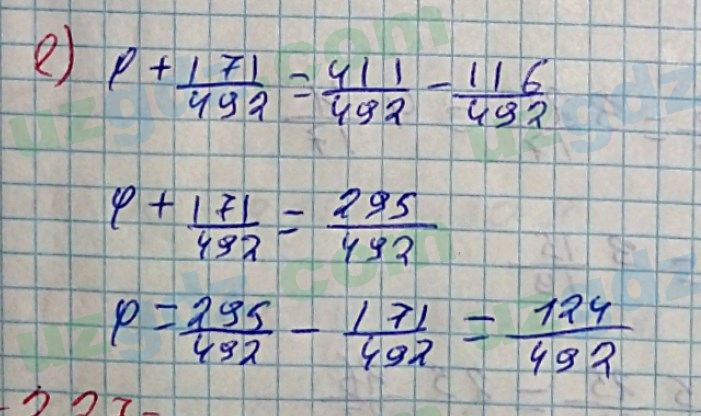 e) p + 171/492 = 411/492 - 116/492
p + 171/492 = 295/492
p = 295/492 - 171/492 = 124/492
uzgdz.com